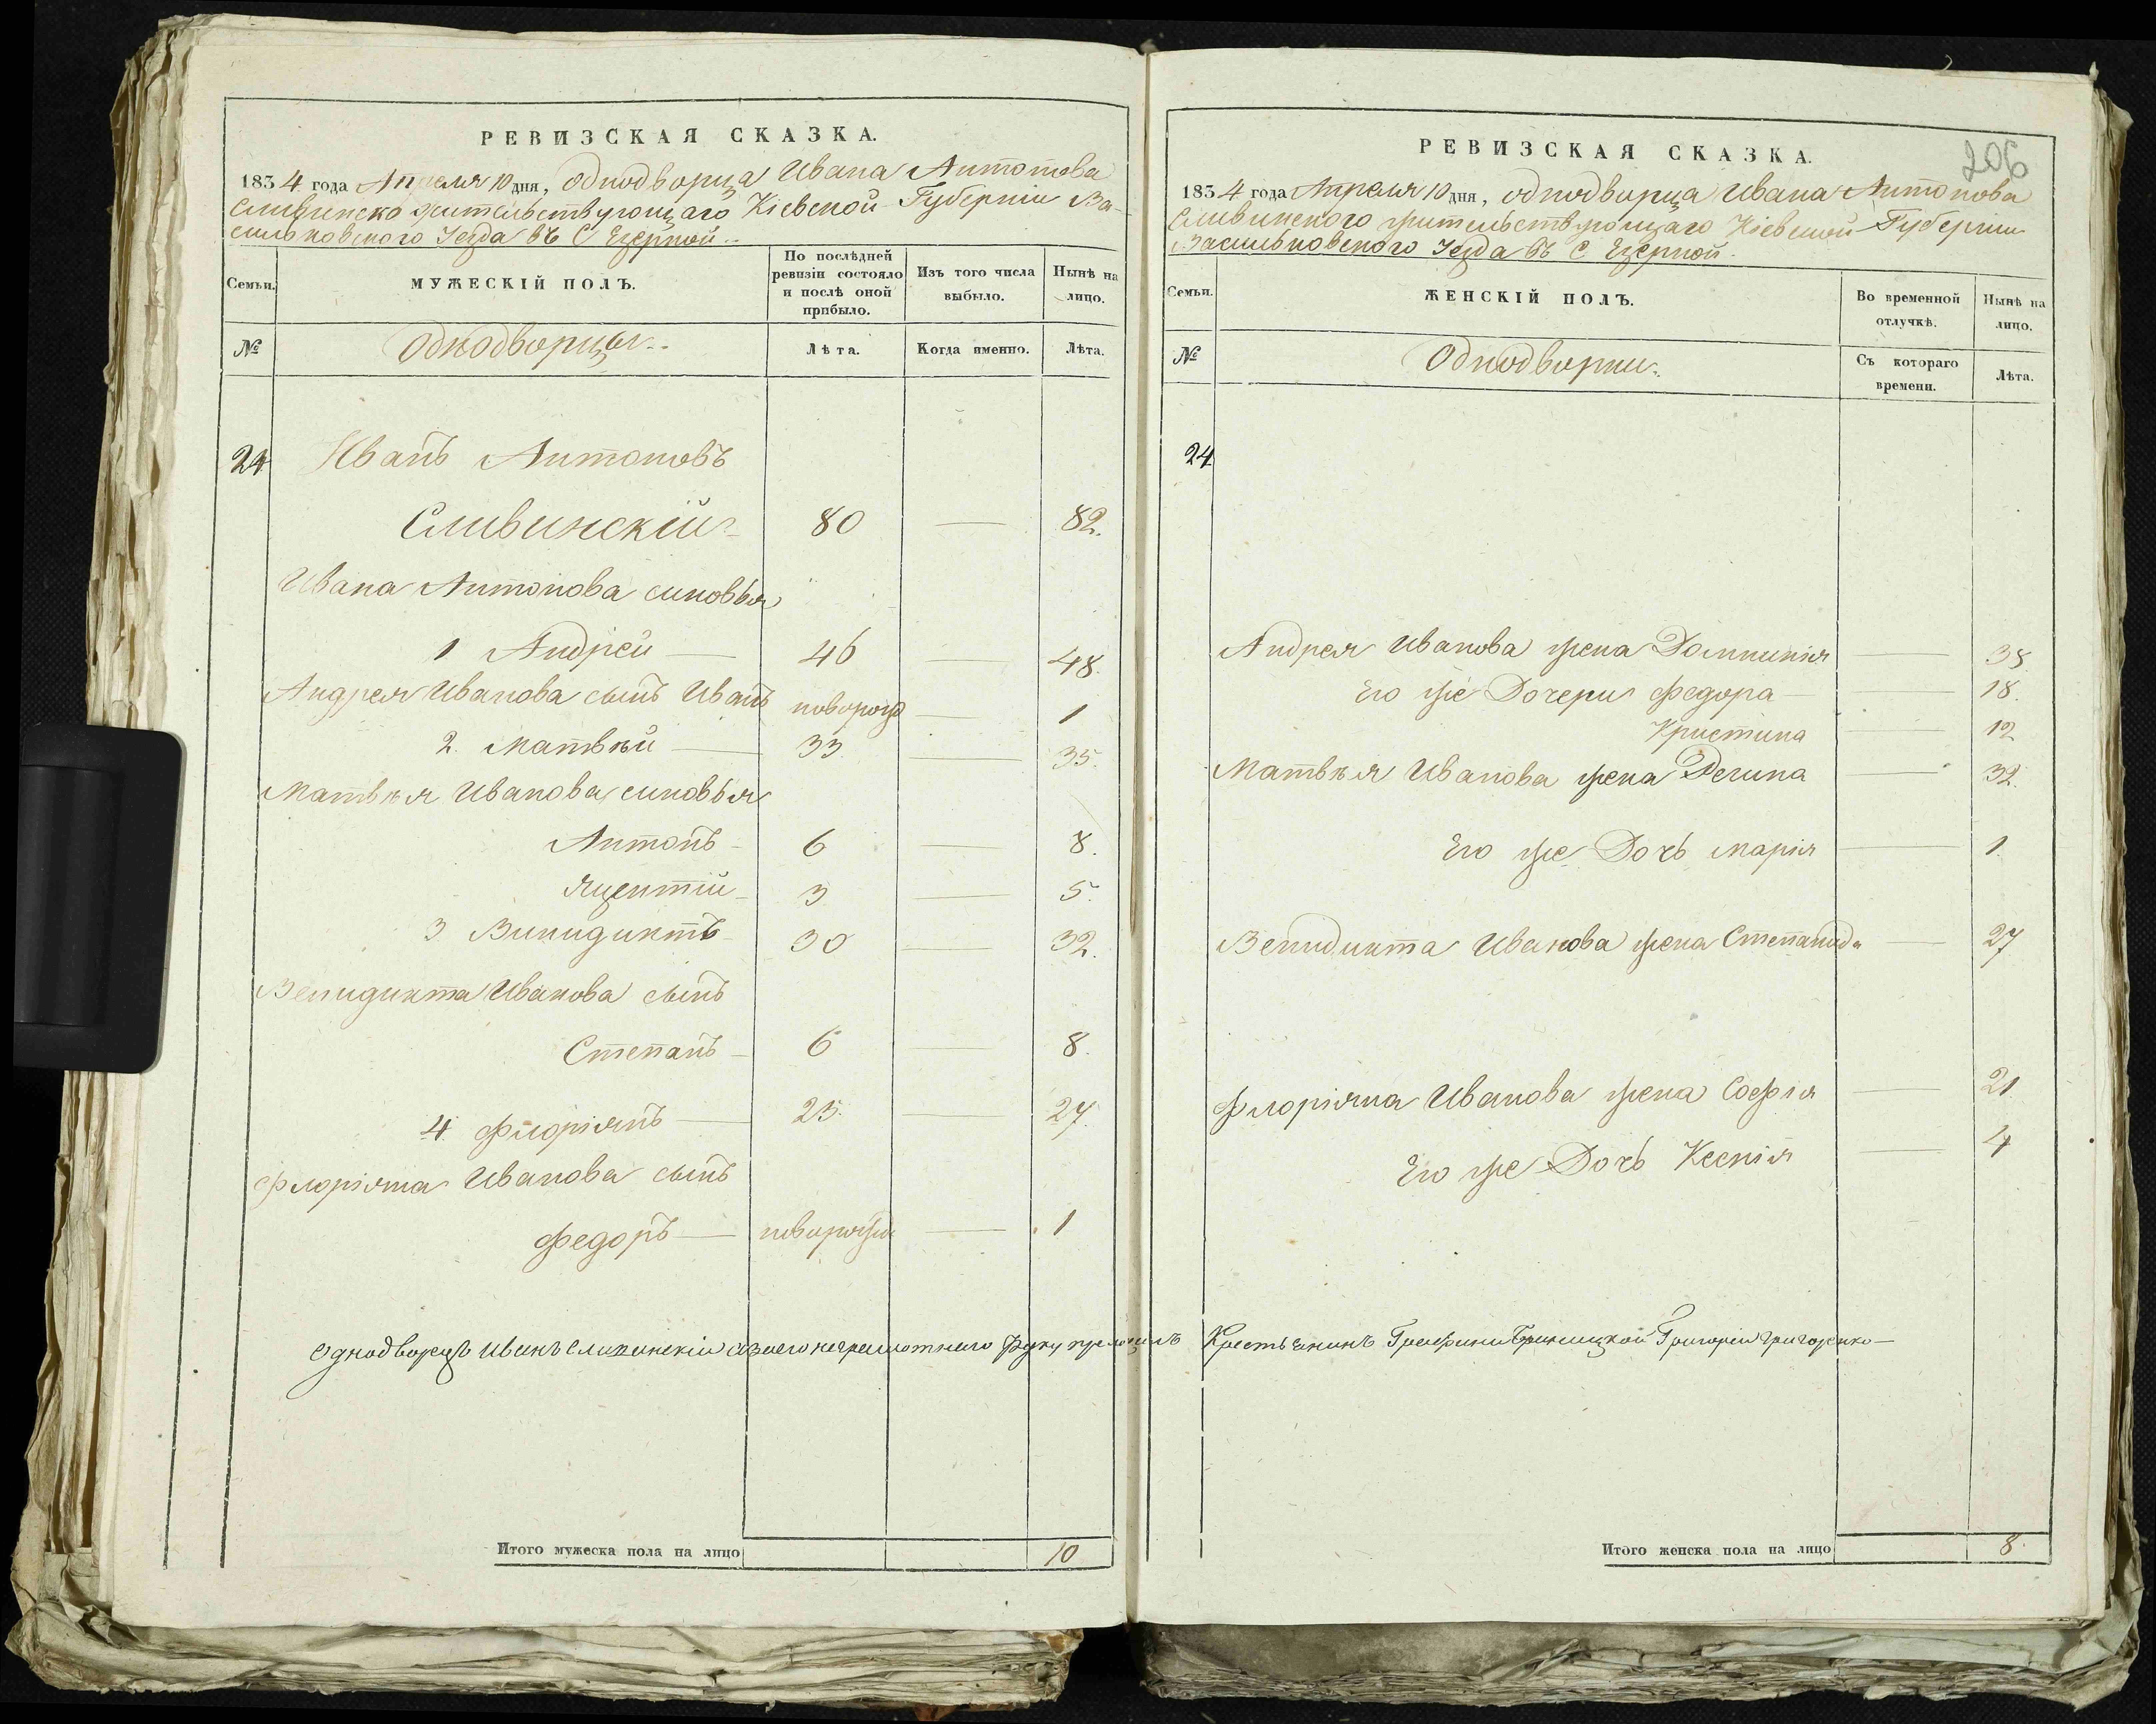 РЕВИЗСКАЯ СКАЗКА.
1834 года Апреля 10 дня, однодворца Ивана Антонова
Сливинско жительствующаго Кіевской Губерніи Ва-
сильковского Уезда въ С Езерной
Семьи.
МУЖЕСКІЙ ПОЛЪ.
По послѣдней ревизіи состояло и послѣ оной прибыло.
Изъ того числа выбыло.
Нынѣ на лицо.
№
Однодворцы
Лѣта.
Когда именно.
Лѣта.
24 Иванъ Антоновъ
Сливинскій 80 — 82.
Ивана Антонова синовья
1 Андрей — 46 — 48.
Андрея Иванова сынъ Иванъ новорожд — 1
2. Матвѣй — 33. — 35.
Матвѣя Иванова синовья
Антонъ 6 — 8.
Яцентій 3 — 5.
3 Винидиктъ 30 — 32.
Венидикта Иванова сынъ
Степанъ — 6 — 8.
4. Флоріянъ — 25. — 27.
Флоріяна Иванова сынъ
Федоръ — новорожд — 1
Однодворецъ Иванъ Сливинскій а заего неграмотнаго руку приложилъ
Итого мужеска пола на лицо 10
206
РЕВИЗСКАЯ СКАЗКА.
1834 года Апреля 10 дня, однодворца Ивана Антонова
Сливинского жительствующаго Кіевской Губерніи
Васильковского Уезда въ С Езерной.
Семьи.
ЖЕНСКІЙ ПОЛЪ.
Во временной отлучкѣ.
Нынѣ на лицо.
№
Однодворки.
Съ котораго времени.
Лѣта.
24
Андрея Иванова жена Домникія — 38.
Его же Дочери Федора — 18.
Кристина — 12
Матвѣя Иванова жена Регина — 32.
Его же Дочь Марія — 1.
Венидикта Иванова жена Степанида — 27
Флоріяна Иванова жена Софія — 21
Его же Дочь Ксенія — 4
Крестьенинъ Графини Браницкой Григорій Григоренко —
Итого женска пола на лицо 8.